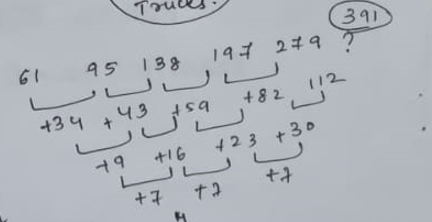 Trucks.
391
61 95 138 197 279 ?
+34 +43 +59 +82 112
+9 +16 +23 +30
+7 +7 +7